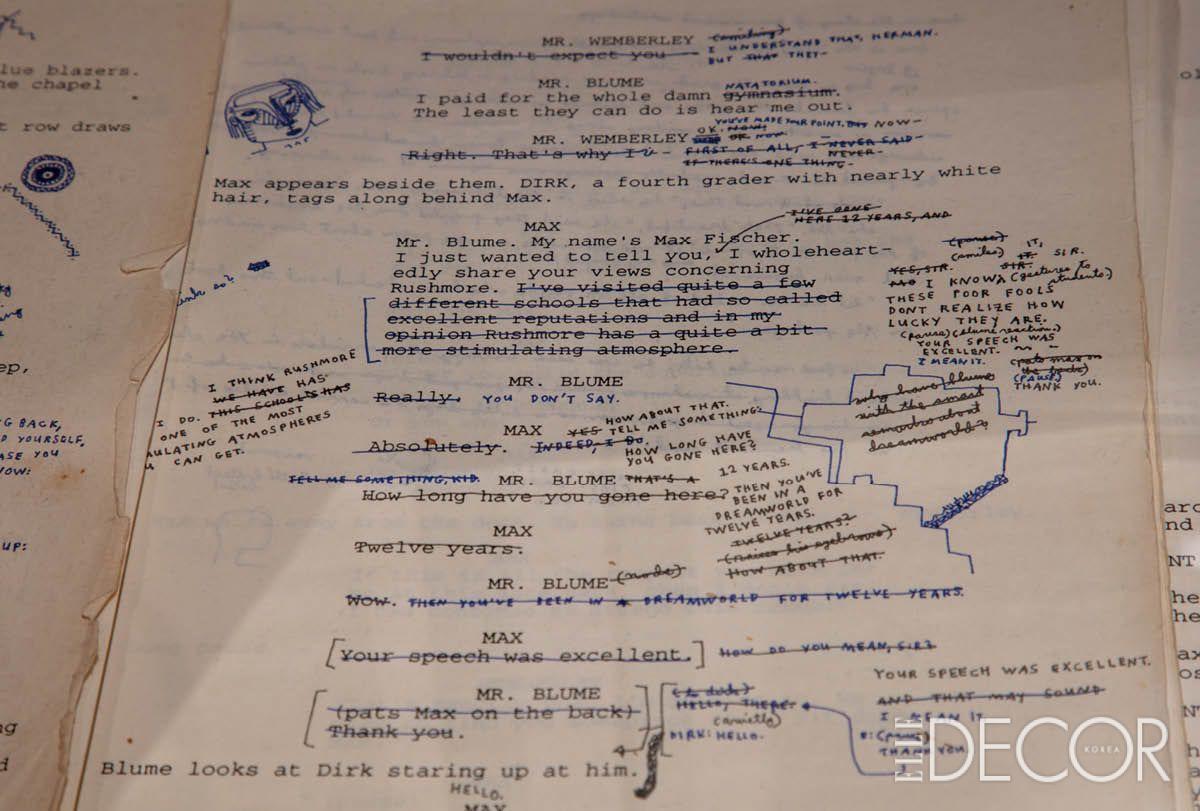 MR. WEMBERLEY
I wouldn't expect you
I UNDERSTAND THAT, HERMAN.
BUT THAT THEY-
MR. BLUME
NATATORIUM.
I paid for the whole damn gymnasium.
The least they can do is hear me out.
YOU'VE MADE YOUR POINT, BUT NOW-
MR. WEMBERLEY
OK. NOW,
OK NOW
Right. That's why I
FIRST OF ALL, I NEVER SAID-
NEVER-
IF THERE'S ONE THING-
Max appears beside them. DIRK, a fourth grader with nearly white
hair, tags along behind Max.
I'VE GONE
HERE 12 YEARS, AND
MAX
Mr. Blume. My name's Max Fischer.
I just wanted to tell you, I wholeheart-
edly share your views concerning
Rushmore. I've visited quite a few
different schools that had so called
excellent reputations and in my
opinion Rushmore has a quite a bit
more stimulating atmosphere.
(pause) IT,
(smiles) IT. SIR.
YES, SIR. SIR.
I KNOW (gestures to
students)
THESE POOR FOOLS
DONT REALIZE HOW
LUCKY THEY ARE.
(pause) (blume reaction.)
YOUR SPEECH WAS
EXCELLENT.
I MEAN IT.
(pats max on
the back)
(PAUSE)
THANK YOU.
I THINK RUSHMORE
WE HAVE HAS
I DO. THIS SCHOOL'S HAS
ONE OF THE MOST
ULATING ATMOSPHERES
CAN GET.
MR. BLUME
Really. YOU DON'T SAY.
why have blume
with the
about
dreamworld?
HOW ABOUT THAT.
MAX
YES TELL ME SOMETHING:
Absolutely. INDEED, I DO.
HOW LONG HAVE
YOU GONE HERE?
TELL ME SOMETHING, KID. MR. BLUME THAT'S A
How long have you gone here?
12 YEARS.
THEN YOU'VE
BEEN IN A
DREAMWORLD FOR
TWELVE YEARS.
TWELVE YEARS?
(raises his eyebrows)
HOW ABOUT THAT.
MAX
Twelve years.
MR. BLUME (nods)
Wow. THEN YOU'VE BEEN IN A DREAMWORLD FOR TWELVE YEARS.
MAX
[Your speech was excellent.] HOW DO YOU MEAN, SIR?
YOUR SPEECH WAS EXCELLENT.
MR. BLUME
(pats Max on the back)
Thank you.
HELLO, THERE.
DIRK: HELLO.
AND THAT MAY SOUND
I MEAN IT
B: (pause)
THANK YOU
Blume looks at Dirk staring up at him.
HELLO.
MAX
lue blazers.
he chapel
t row draws
G BACK,
D YOURSELF,
ASE YOU
NOW:
UP:
ELLE DECOR KOREA